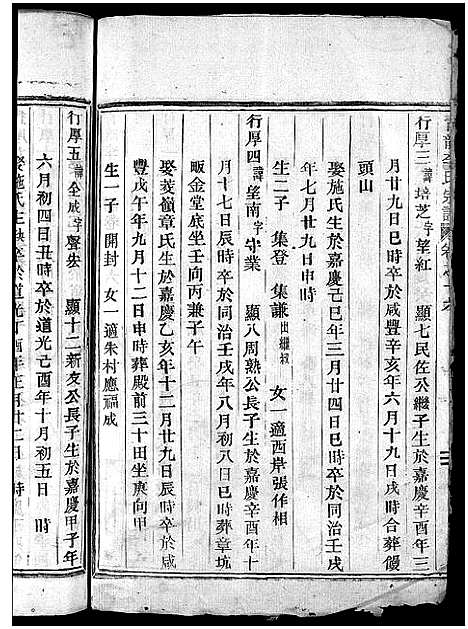 行厚三諱培芝字望紅 顯七民佐公繼子生於嘉慶辛酉年三
月廿九日巳時卒於咸豐辛亥年六月十九日戌時合葬饅
頭山
娶施氏生於嘉慶己巳年三月廿四日巳時卒於同治壬戌
年七月
生二子 集登 集謙出繼叔 女一適西岸張作相
行厚四諱望南字守業 顯八周熟公長子生於嘉慶辛酉年十
月十七日辰時卒於同治壬戌年八月初八日巳時葬章坑
畈金堂底坐壬向丙兼子午
娶菱嶺章氏生於嘉慶乙亥年十二月廿九日辰時卒於咸
豐戊午年九月十二日申時葬殿前三十田坐庚向甲
生一子 開封 女一適朱村應福成
行厚五諱全成字聲宏 顯十二新友公長子生於嘉慶甲子年
六月初四日丑時卒於道光己酉年十月初五日 時
娶施氏生缺卒於道光丁酉年正月廿二日 時